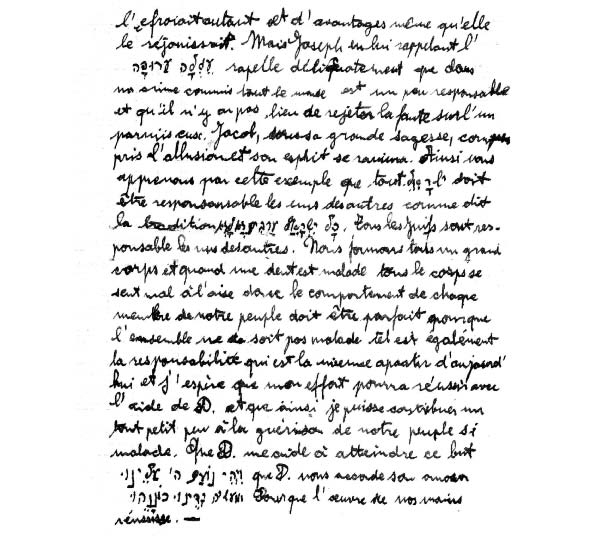 l'efroiait autant et d'avantages même qu'elle
le réjouissait. Mais Joseph en lui rappelant l'
עֶגְלָה עֲרוּפָה rapelle délicatement que dans
un crime commis tout le monde est un peu responsable
et qu'il n'y a pas lieu de rejeter la faute sur l'un
parmis eux. Jacob, dans sa grande sagesse, compris
pris l'allusion et son esprit se ranima. Ainsi nous
apprenons par cette exemple que tout doit
être responsansable les uns des autres comme dit
la tradition כָּל יִשְׂרָאֵל עֲרֵבִים. Tous les Juifs sont res-
ponsable les uns des autres. Nous formons tous un grand
corps et quand une dent est malade tous le corps se
sent mal à l'aise donc le comportement de chaque
membre de notre peuple doit être parfait pourque
l'ensemble ne soit pas malade tel est également
la responsabilité qui est la mienne apartir d'aujourd'
hui et j'espère que mon effort pourra réussir avec
l'aide de D. et que ainsi je puisse contribuer un
tout petit peu à la guérison de notre peuple si
malade. Que D. me aide à atteindre ce but
וִיהִי נוֹעַם ה' עָלֵינוּ que D. nous accorde son amour
וּמַעֲשֵׂה יָדֵינוּ כּוֹנְנֵהוּ Pourque l'œuvre de nos mains
réussisse. —